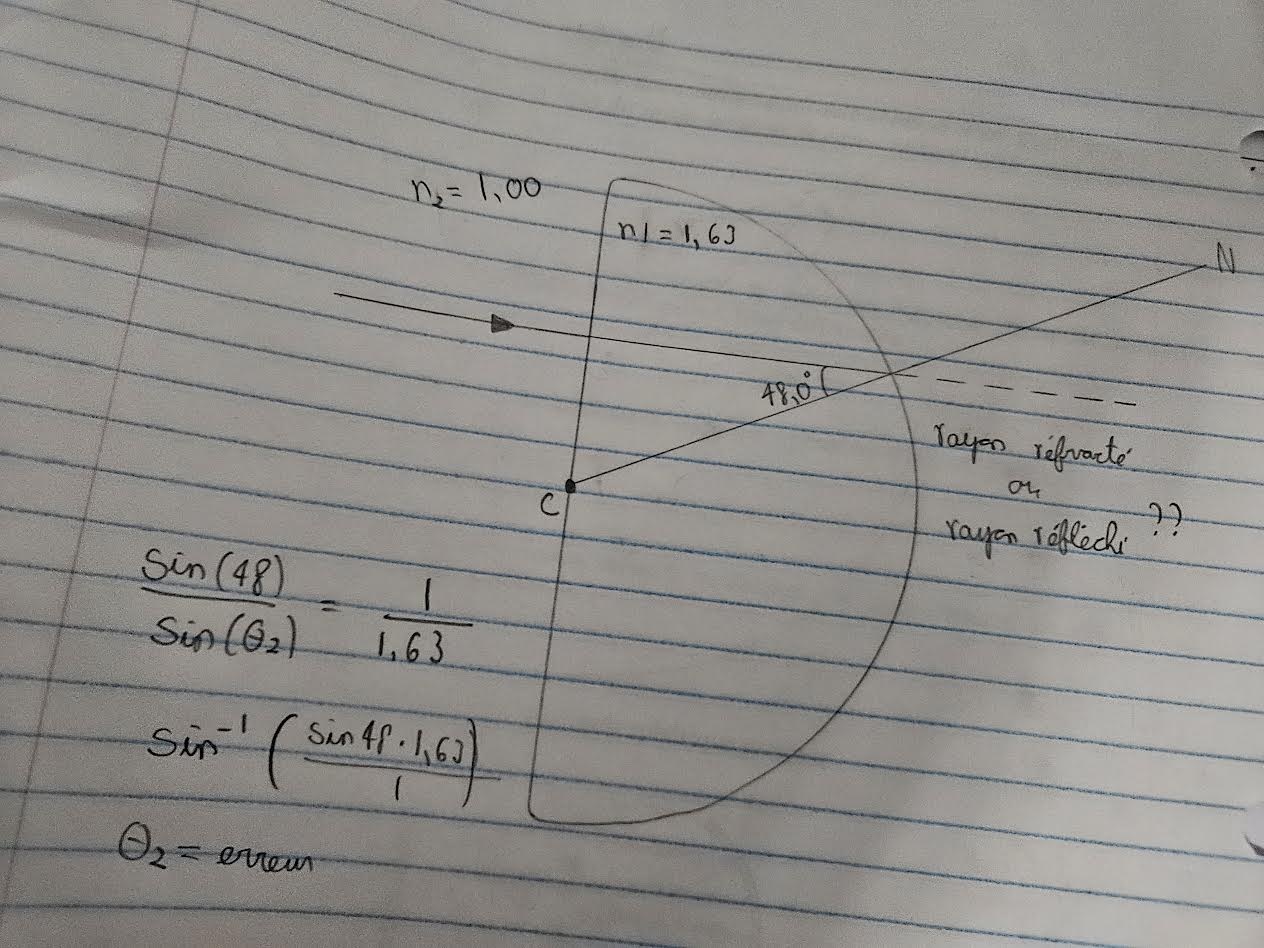 n₂ = 1,00
n1 = 1,63
N
48,0°
C
rayon réfracté
ou
rayon réfléchi ??
Sin(48) / Sin(θ₂) = 1 / 1,63
Sin⁻¹ ( Sin 48 · 1,63 / 1 )
θ₂ = erreur